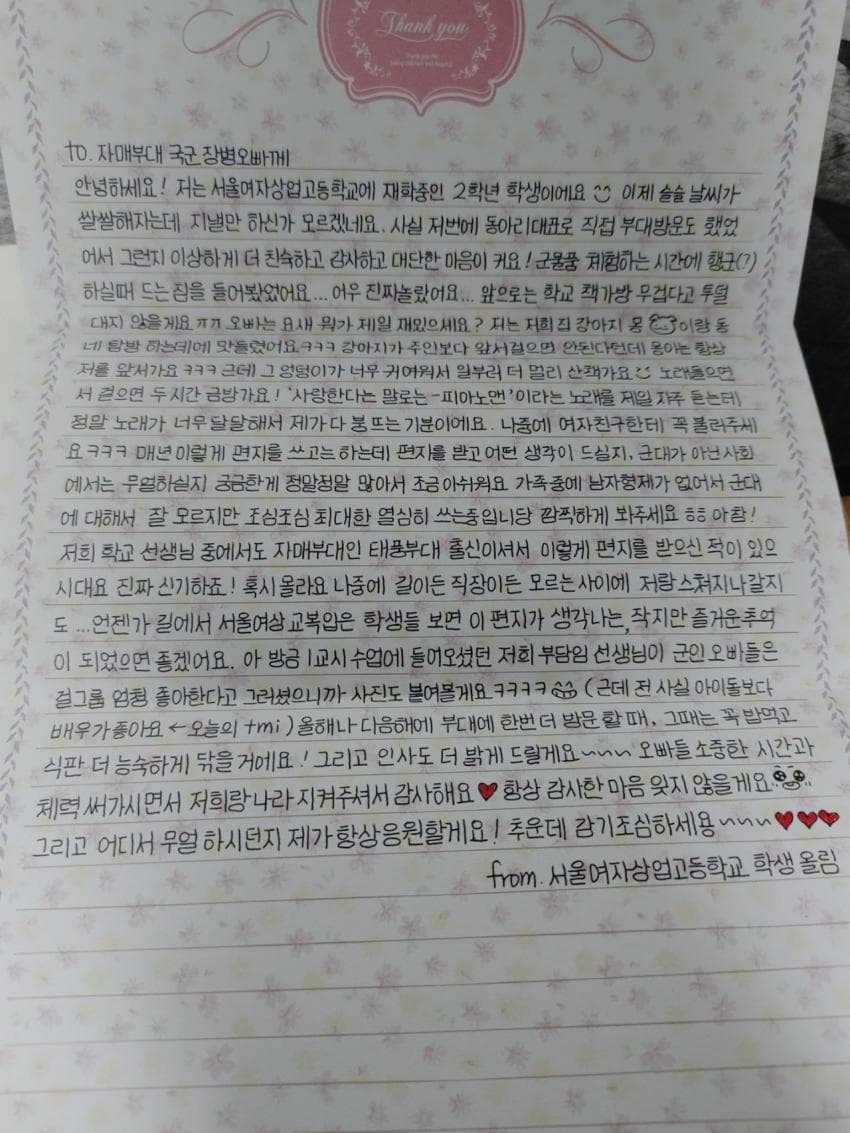 Thank you
to. 자매부대 국군 장병오빠께
안녕하세요! 저는 서울여자상업고등학교에 재학중인 2학년 학생이에요 이제 슬슬 날씨가
쌀쌀해지는데 지낼만 하신가 모르겠네요. 사실 저번에 동아리대표로 직접 부대방문도 했었
어서 그런지 이상하게 더 친숙하고 감사하고 대단한 마음이 커요! 군물품 체험하는 시간에 행군(?)
하실때 드는 짐을 들어봤었어요... 어우 진짜놀랐어요... 앞으로는 학교 책가방 무겁다고 투덜
대지 않을게요ㅠㅠ 오빠는 요새 뭐가 제일 재밌으세요? 저는 저희집 강아지 몽이랑 동
네 탐방 하는데에 맛들렸어요ㅋㅋㅋ 강아지가 주인보다 앞서걸으면 안된다던데 몽이는 항상
저를 앞서가요ㅋㅋㅋ 근데 그 엉덩이가 너무 귀여워서 일부러 더 멀리 산책가요 노래들으면
서 걸으면 두시간 금방가요! '사랑한다는 말로는-피아노맨'이라는 노래를 제일 자주 듣는데
정말 노래가 너무 달달해서 제가 다 붕뜨는 기분이에요. 나중에 여자친구한테 꼭 불러주세
요ㅋㅋㅋ 매년 이렇게 편지를 쓰고는 하는데 편지을 받고 어떤 생각이 드실지, 군대가 아닌 사회
에서는 무얼하실지 궁금한게 정말정말 많아서 조금 아쉬워요 가족중에 남자형제가 없어서 군대
에 대해서 잘 모르지만 조심조심 최대한 열심히 쓰는중입니당 깜찍하게 봐주세요ㅎㅎ 아참!
저희 학교 선생님 중에서도 자매부대인 태풍부대 출신이셔서 이렇게 편지를 받으신 적이 있으
시대요 진짜 신기하죠! 혹시 몰라요 나중에 길이든 직장이든 모르는사이에 저랑스쳐지나갈지
도 ...언젠가 길에서 서울여상 교복입은 학생들 보면 이 편지가 생각나는, 작지만 즐거운추억
이 되었으면 좋겠어요. 아 방금 1교시 수업에 들어오셨던 저희 부담임 선생님이 군인 오빠들은
걸그룹 엄청 좋아한다고 그러셨으니까 사진도 붙여볼게요ㅋㅋㅋㅋ (근데 전 사실 아이돌보다
배우가 좋아요 ← 오늘의 tmi) 올해나 다음해에 부대에 한번 더 방문할 때, 그때는 꼭 밥먹고
식판 더 능숙하게 닦을 거에요! 그리고 인사도 더 밝게 드릴게요~~~ 오빠들 소중한 시간과
체력 써가시면서 저희랑 나라 지켜주셔서 감사해요♥ 항상 감사한 마음 잊지 않을게요
그리고 어디서 무얼 하시던지 제가 항상응원할게요! 추운데 감기조심하세용~~~♥♥♥
from. 서울여자상업고등학교 학생 올림